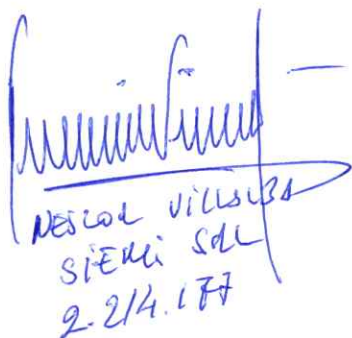 NESTOR VILLALBA
SIEMI SRL
2.214.177